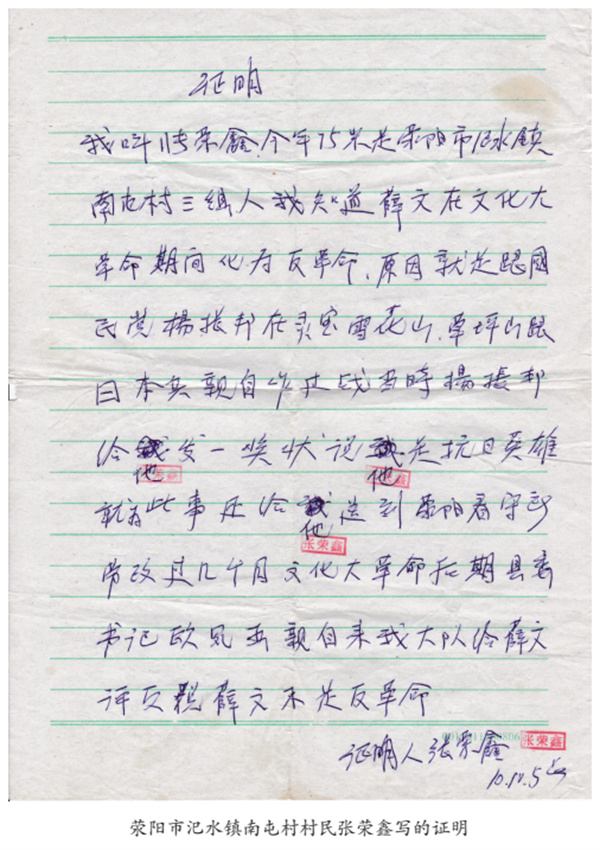 证明
我叫张荣鑫,今年75岁是荥阳市汜水镇
南屯村三组人我知道薛文在文化大
革命期间化为反革命.原因就是跟國
民党楊振邦在灵宝雪花山.草坪山跟
日本兵親自作过战当時楊振邦
给他发一奖状说他是抗日英雄
就为此事还给他送到荥阳看守所
劳改过几个月文化大革命后期县委
书记欧凤西親自来我大队给薛文
评反 薛文不是反革命
张荣鑫
张荣鑫
张荣鑫
证明人张荣鑫
张荣鑫
荥阳市汜水镇南屯村村民张荣鑫写的证明